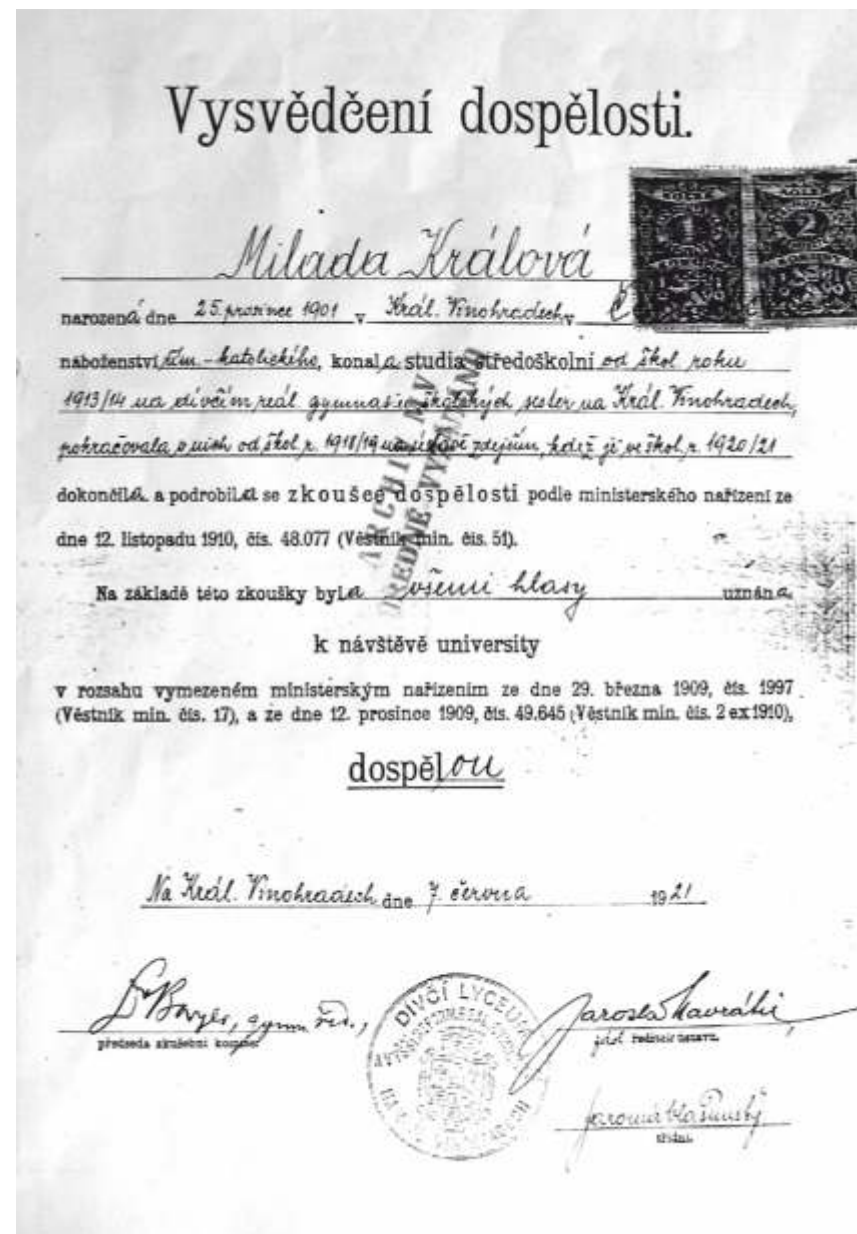 Vysvědčení dospělosti.
1 2
Milada Králová
narozená dne 25. prosince 1901 v Král. Vinohradech, Č
náboženství řím.-katolického, konala studia středoškolní od škol. roku
1913/14 na dívčím reál. gymnasiu školských sester na Král. Vinohradech,
pokračovala v nich od škol. r. 1918/19 na ústavě zdejším, kdež je ve škol. r. 1920/21
dokončila a podrobila se zkoušce dospělosti podle ministerského nařízení ze
dne 12. listopadu 1910, čís. 48.077 (Věstník min. čís. 51).
ARCHIV M.V.
Na základě této zkoušky byla všemi hlasy uznána
k návštěvě university
v rozsahu vymezeném ministerským nařízením ze dne 29. března 1909, čís. 1997
(Věstník min. čís. 17), a ze dne 12. prosince 1909, čís. 49.645 (Věstník min. čís. 2 ex 1910),
dospělou
Na Král. Vinohradech dne 7. června 1921
gymn. řed.,
předseda zkušební komise.
DÍVČÍ LYCEUM
Jaroslav
ředitel ústavu.
Jaromír
třídní.